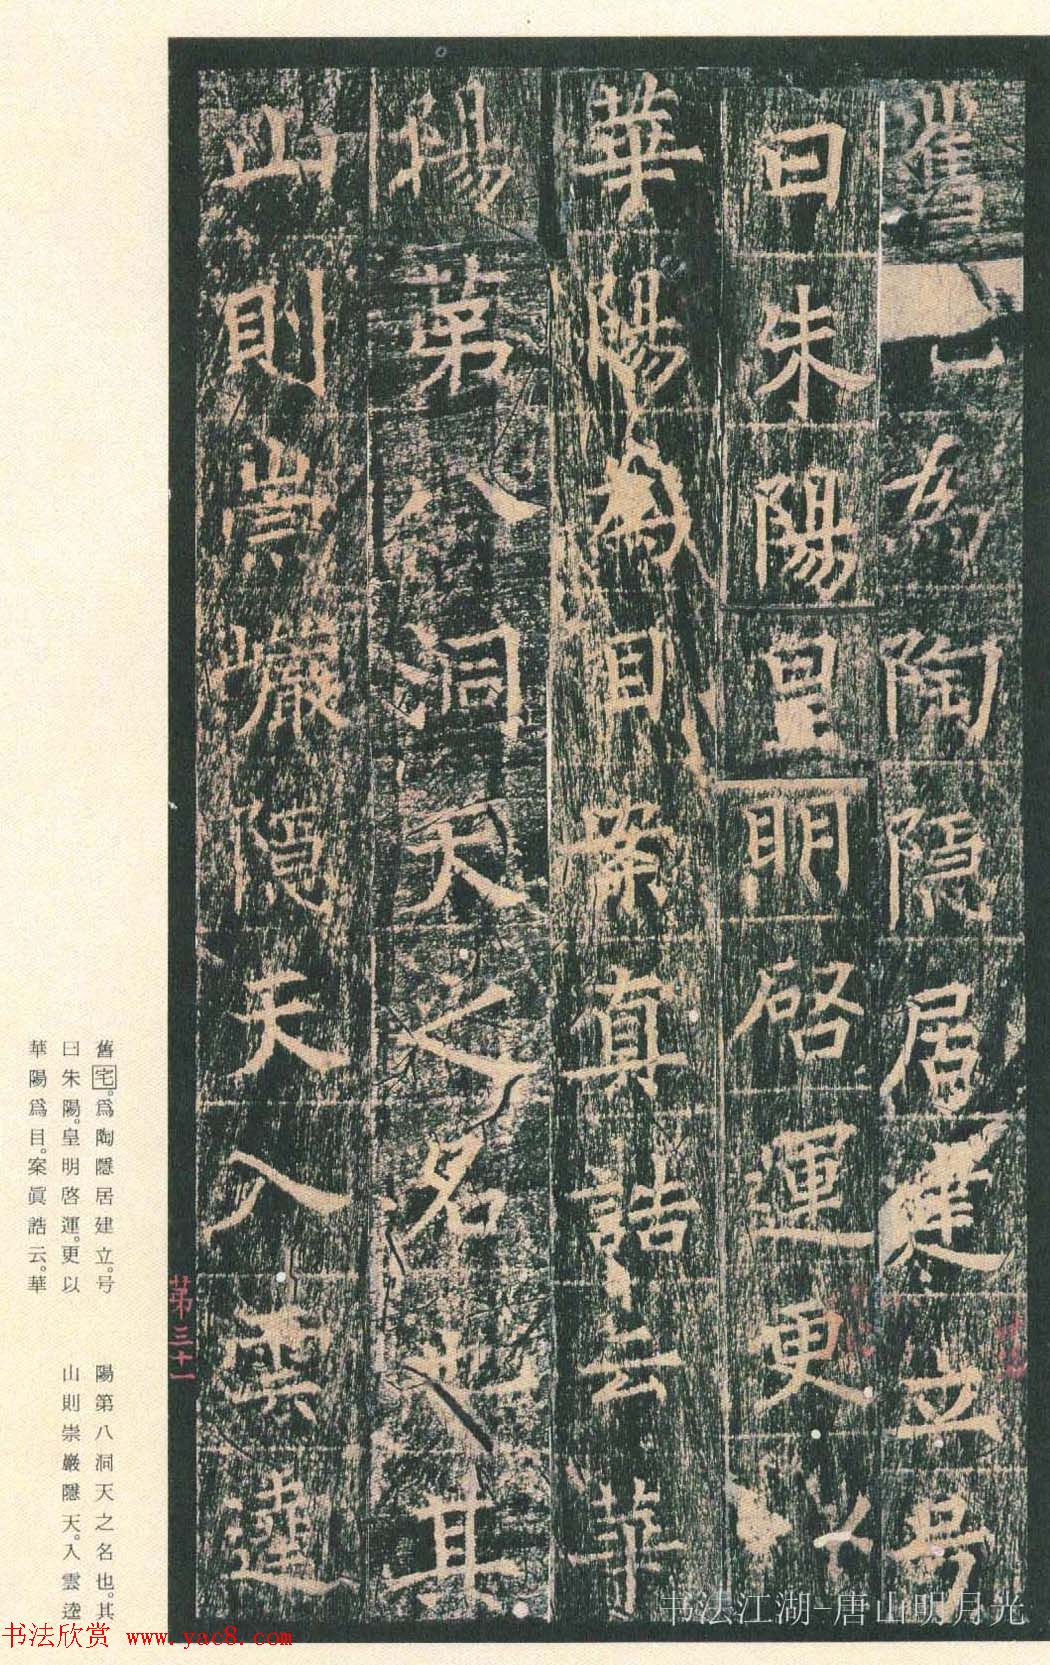 舊 為陶隱居建立号
曰朱陽皇明啓運更以
華陽為目案真誥云華
陽苐八洞天之名也其
山則崇巖隱天入雲逵
苐三十一
舊宅。爲陶隱居建立。号
曰朱陽。皇明啓運。更以
華陽爲目。案眞誥云。華
陽第八洞天之名也。其
山則崇巖隱天。入雲逵
书法江湖-唐山明月光
书法欣赏 www.yac8.com